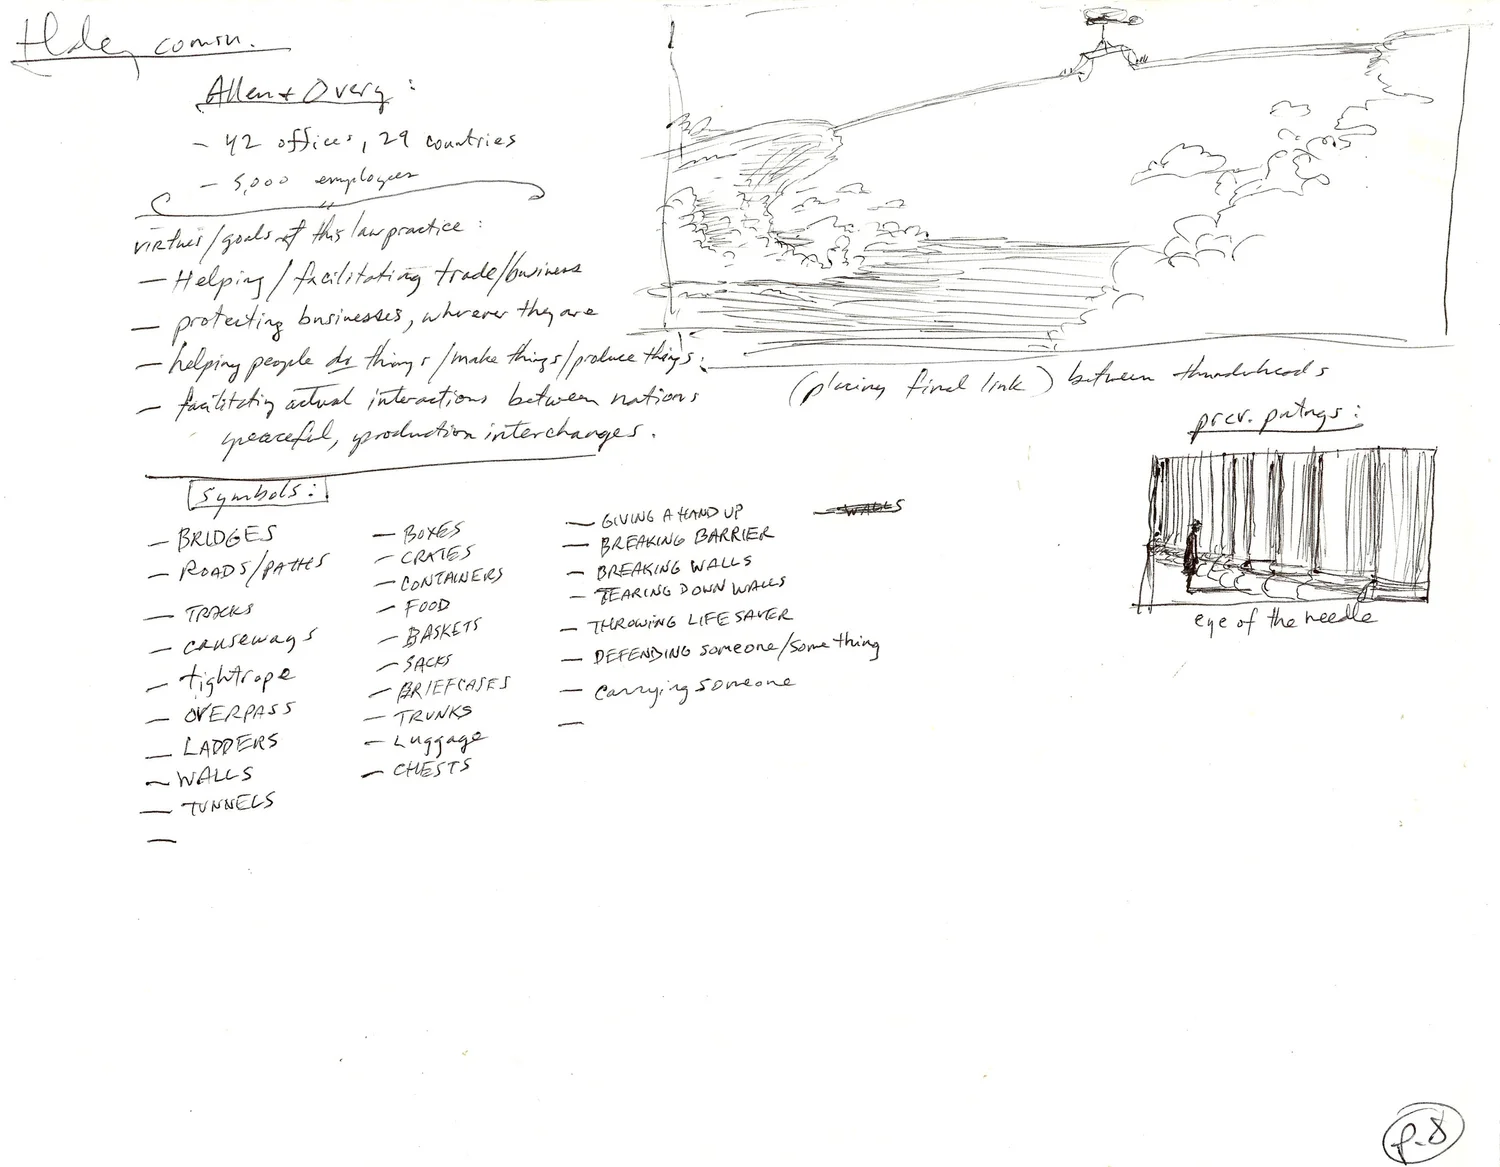 comm.
Allen & Overy :
- 42 offices, 29 countries
- 5,000 employees
virtues/goals of this law practice :
- Helping / facilitating trade/business
- protecting businesses, wherever they are
- helping people do things/make things/produce things.
- facilitating actual interactions between nations
peaceful, production interchanges.
Symbols:
- BRIDGES
- ROADS/PATHS
- TRACKS
- causeways
- tightrope
- OVERPASS
- LADDERS
- WALLS
- TUNNELS
-
- BOXES
- CRATES
- CONTAINERS
- FOOD
- BASKETS
- SACKS
- BRIEFCASES
- TRUNKS
- Luggage
- CHESTS
- GIVING A HAND UP
- BREAKING BARRIER
- BREAKING WALLS
- TEARING DOWN WALLS
- THROWING LIFE SAVER
- DEFENDING someone/something
- carrying someone
-
- WALLS
(placing final link) between thunderheads
prev. pntngs :
eye of the needle
p.8